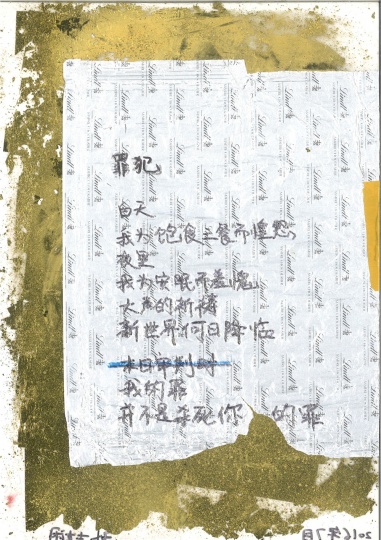 罪犯
白天
我为饱食三餐而惶恐
夜里
我为安眠而羞愧
大声的祈祷
新世界何日降临
末日审判时
我的罪
并不是杀死你 的罪
2016年7月
Lindt